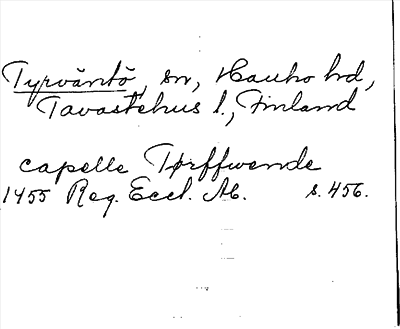 Tyrväntö, sn, Hauho hd,
Tavastehus l., Finland
capelle Tørffwende
1455 Reg. Eccl. Ab. s. 456.